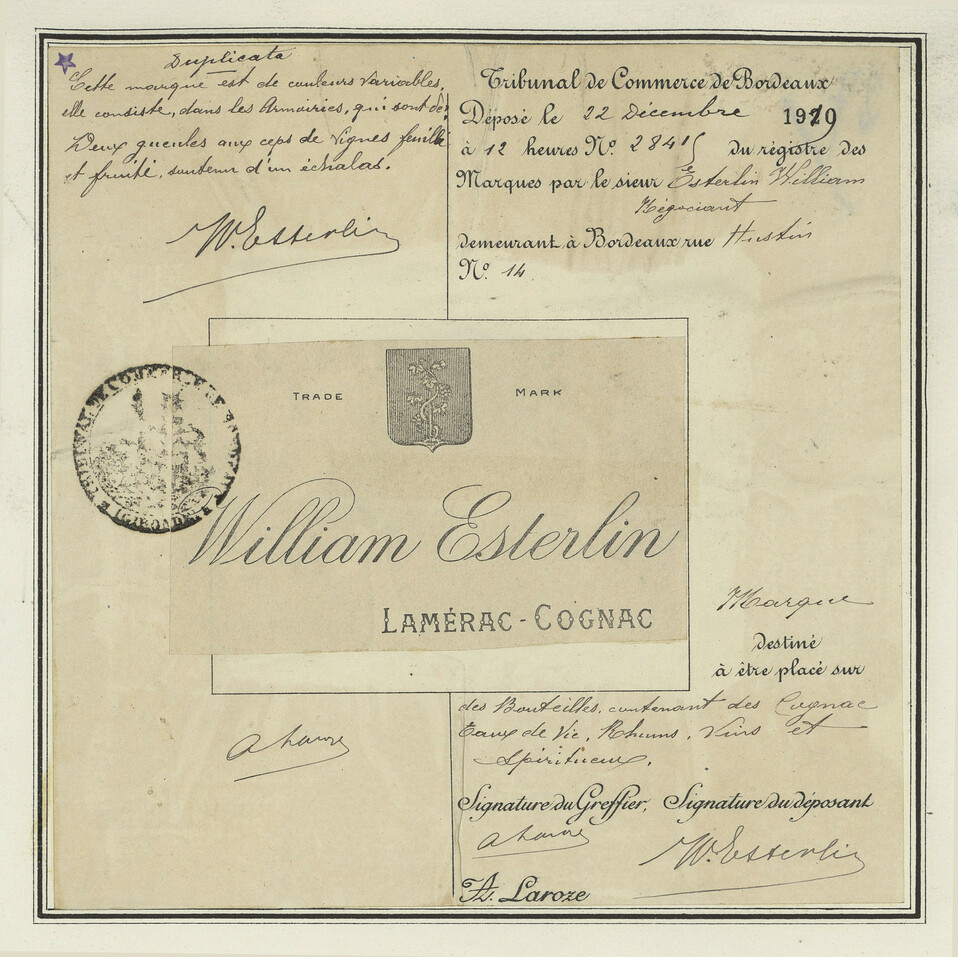 Duplicata
Cette marque est de couleurs variables,
elle consiste, dans les Armoiries, qui sont de:
Deux gueules aux ceps de Vignes feuillé
et fruité, soutenu d'un échalas.
W. Esterlin
Tribunal de Commerce de Bordeaux
Déposé le 22 Décembre 1919
à 12 heures No. 28415 du régistre des
Marques par le sieur Esterlin William
Négociant
demeurant à Bordeaux rue Hustin
No. 14
TRADE MARK
TRIBUNAL DE COMMERCE DE BORDEAUX
(GIRONDE)
William Esterlin
LAMÉRAC-COGNAC
Marque
destiné
à être placé sur
des Bouteilles, contenant des Cognac
Eaux de Vie, Rhums, Vins et
Spiritueux.
Signature du Greffier, Signature du déposant
W. Esterlin
A. Laroze